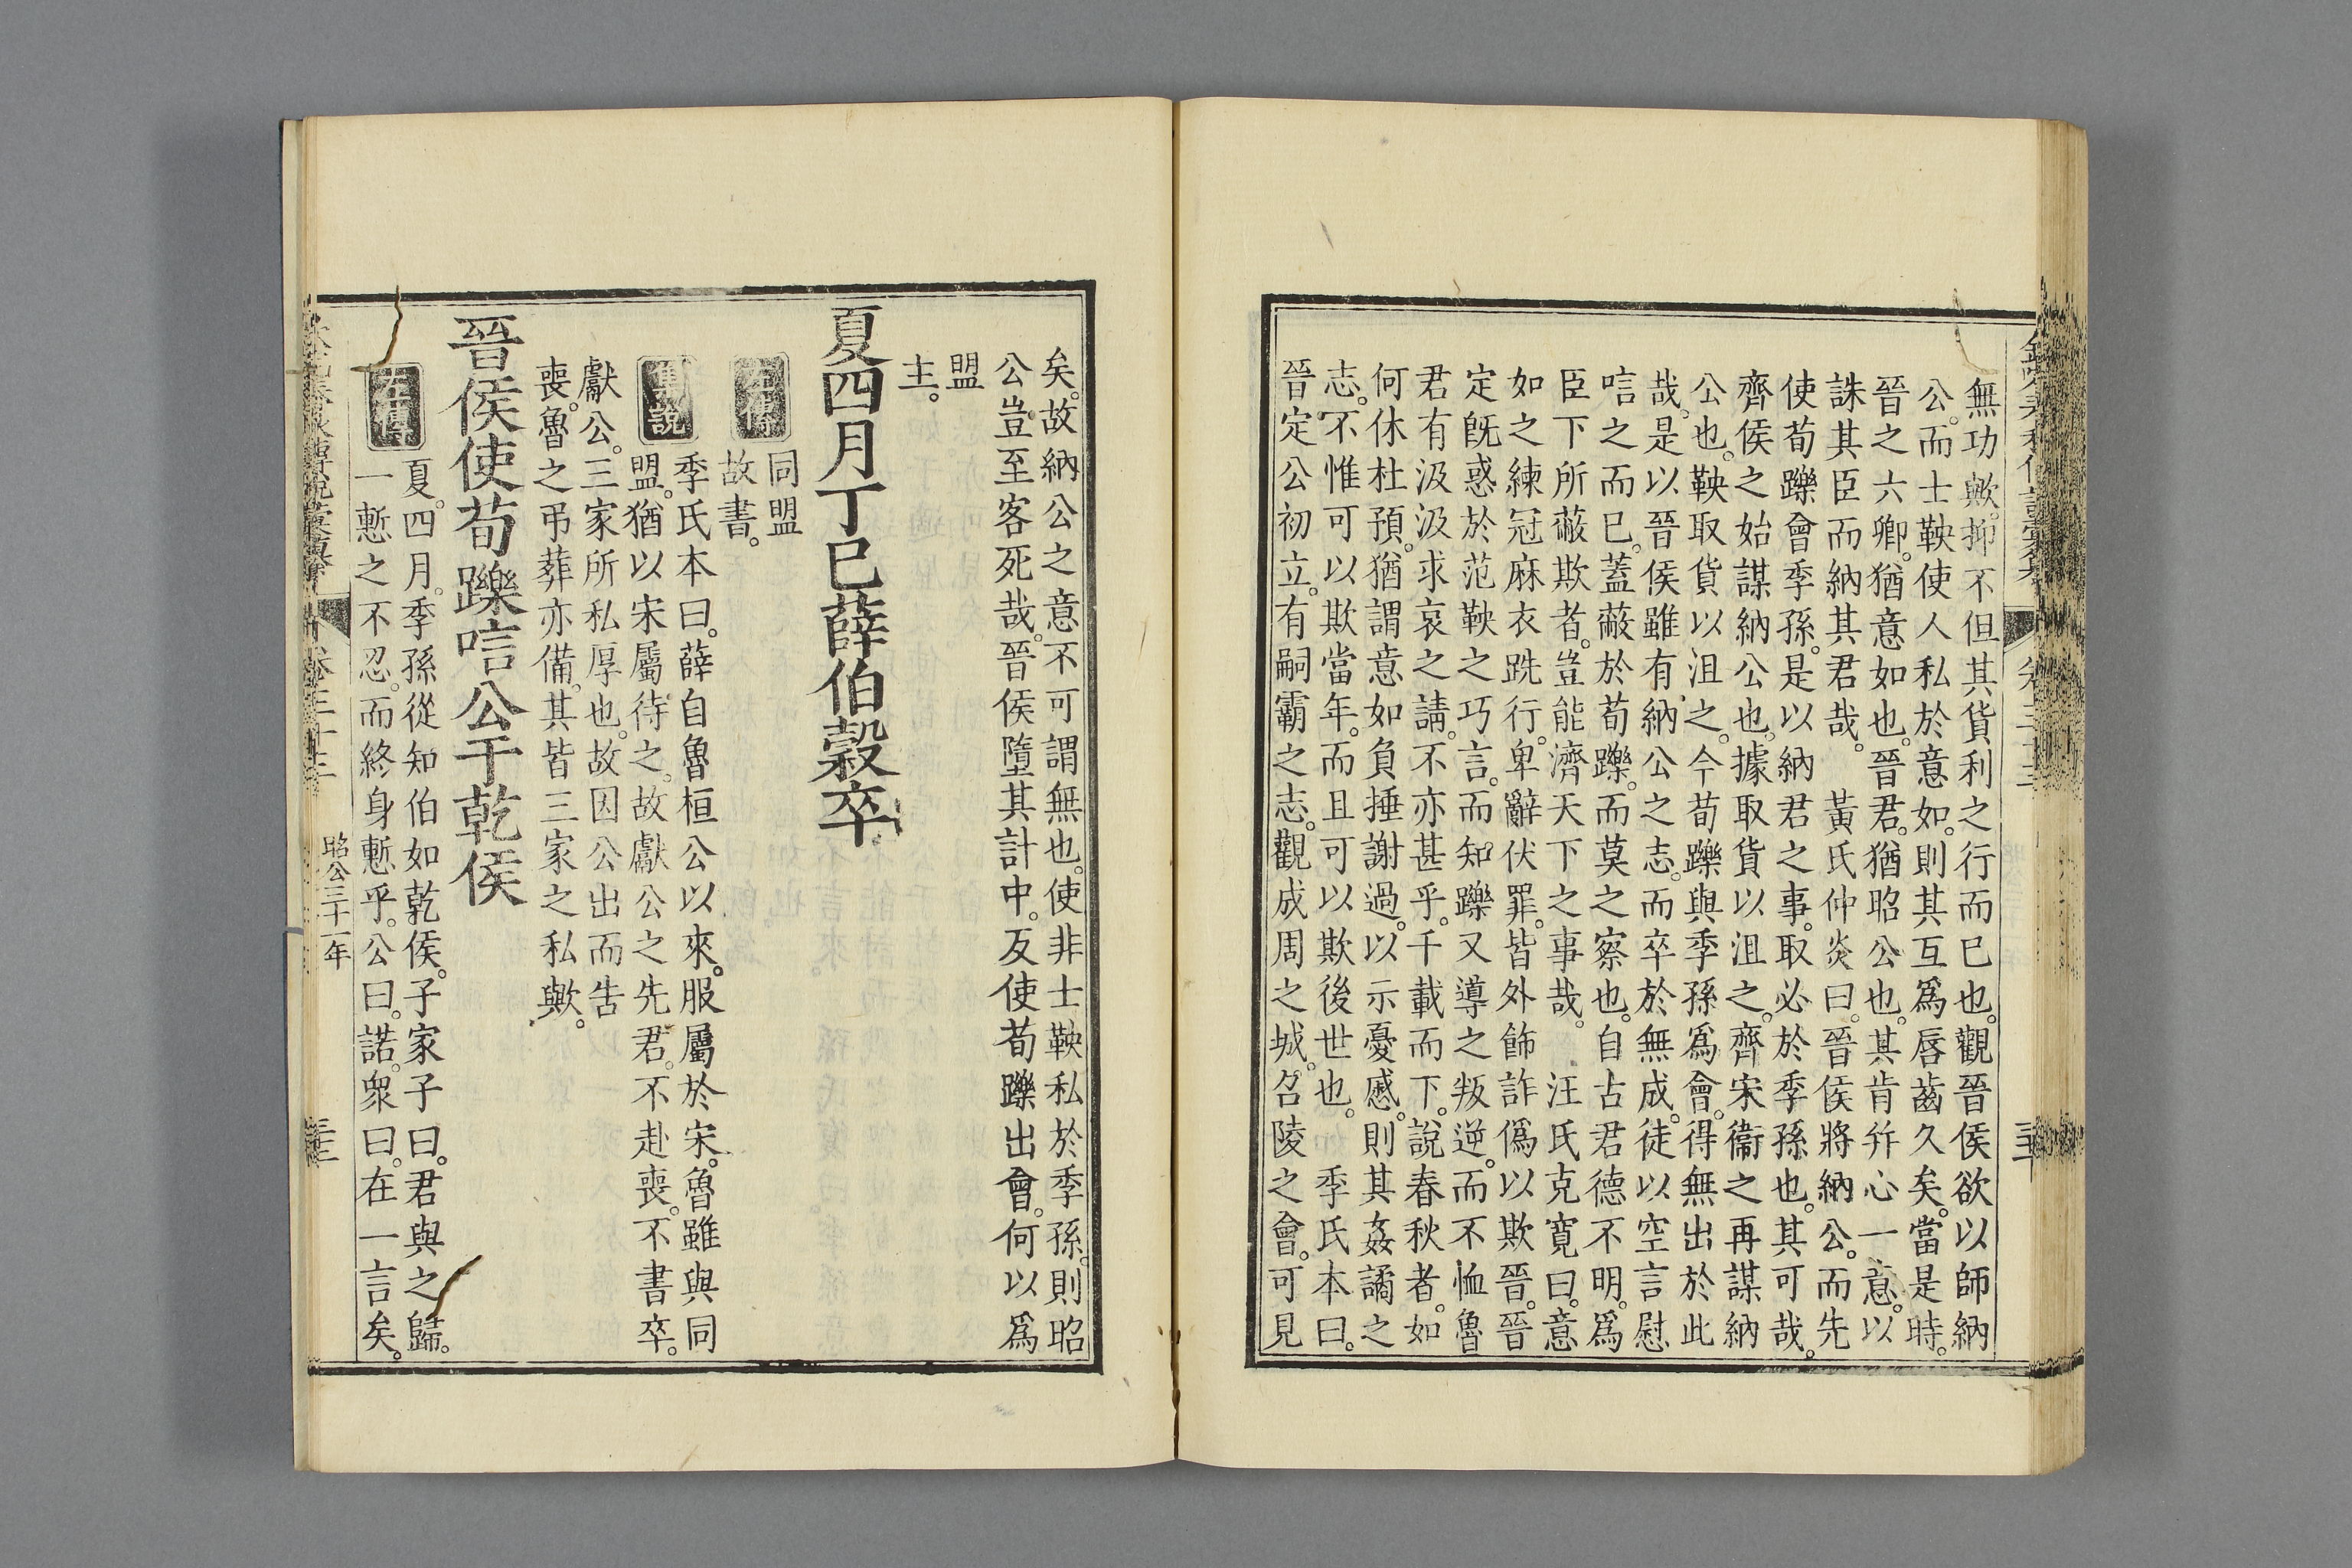 無功歟。抑不但其貨利之行而已也。觀晉侯欲以師納
公。而士鞅使人私於意如。則其互爲唇齒久矣。當是時。
晉之六卿。猶意如也。晉君。猶昭公也。其肯幷心一意。以
誅其臣而納其君哉。　黃氏仲炎曰。晉侯將納公。而先
使荀躒會季孫。是以納君之事。取必於季孫也。其可哉。
齊侯之始謀納公也。據取貨以沮之。齊宋衞之再謀納
公也。鞅取貨以沮之。今荀躒與季孫爲會。得無出於此
哉。是以晉侯雖有納公之志。而卒於無成。徒以空言慰
唁之而已。蓋蔽於荀躒。而莫之察也。自古君德不明。爲
臣下所蔽欺者。豈能濟天下之事哉。　汪氏克寬曰。意
如之練冠麻衣跣行。卑辭伏罪。皆外飾詐僞以欺晉。晉
定旣惑於范鞅之巧言。而知躒又導之叛逆。而不恤魯
君有汲汲求哀之請。不亦甚乎。千載而下。說春秋者。如
何休杜預。猶謂意如負捶謝過。以示憂慼。則其姦譎之
志。不惟可以欺當年。而且可以欺後世也。　季氏本曰。
晉定公初立。有嗣霸之志。觀成周之城。召陵之會。可見
矣。故納公之意不可謂無也。使非士鞅私於季孫。則昭
公豈至客死哉。晉侯墮其計中。反使荀躒出會。何以爲
盟
主。
夏四月丁巳薛伯穀卒
左傳
同盟
故書。
集說
季氏本曰。薛自魯桓公以來。服屬於宋。魯雖與同
盟。猶以宋屬待之。故獻公之先君。不赴喪。不書卒。
獻公。三家所私厚也。故因公出而告
喪。魯之弔葬亦備。其皆三家之私歟。
晉侯使荀躒唁公于乾侯
左傳
夏。四月。季孫從知伯如乾侯。子家子曰。君與之歸。
一慙之不忍。而終身慙乎。公曰。諾。衆曰。在一言矣。
昭公三十一年